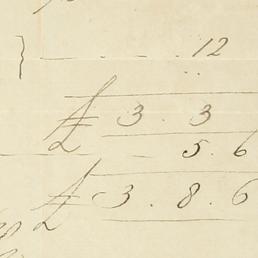 12
£ 3 . 3
5 . 6
£ 3 . 8 . 6